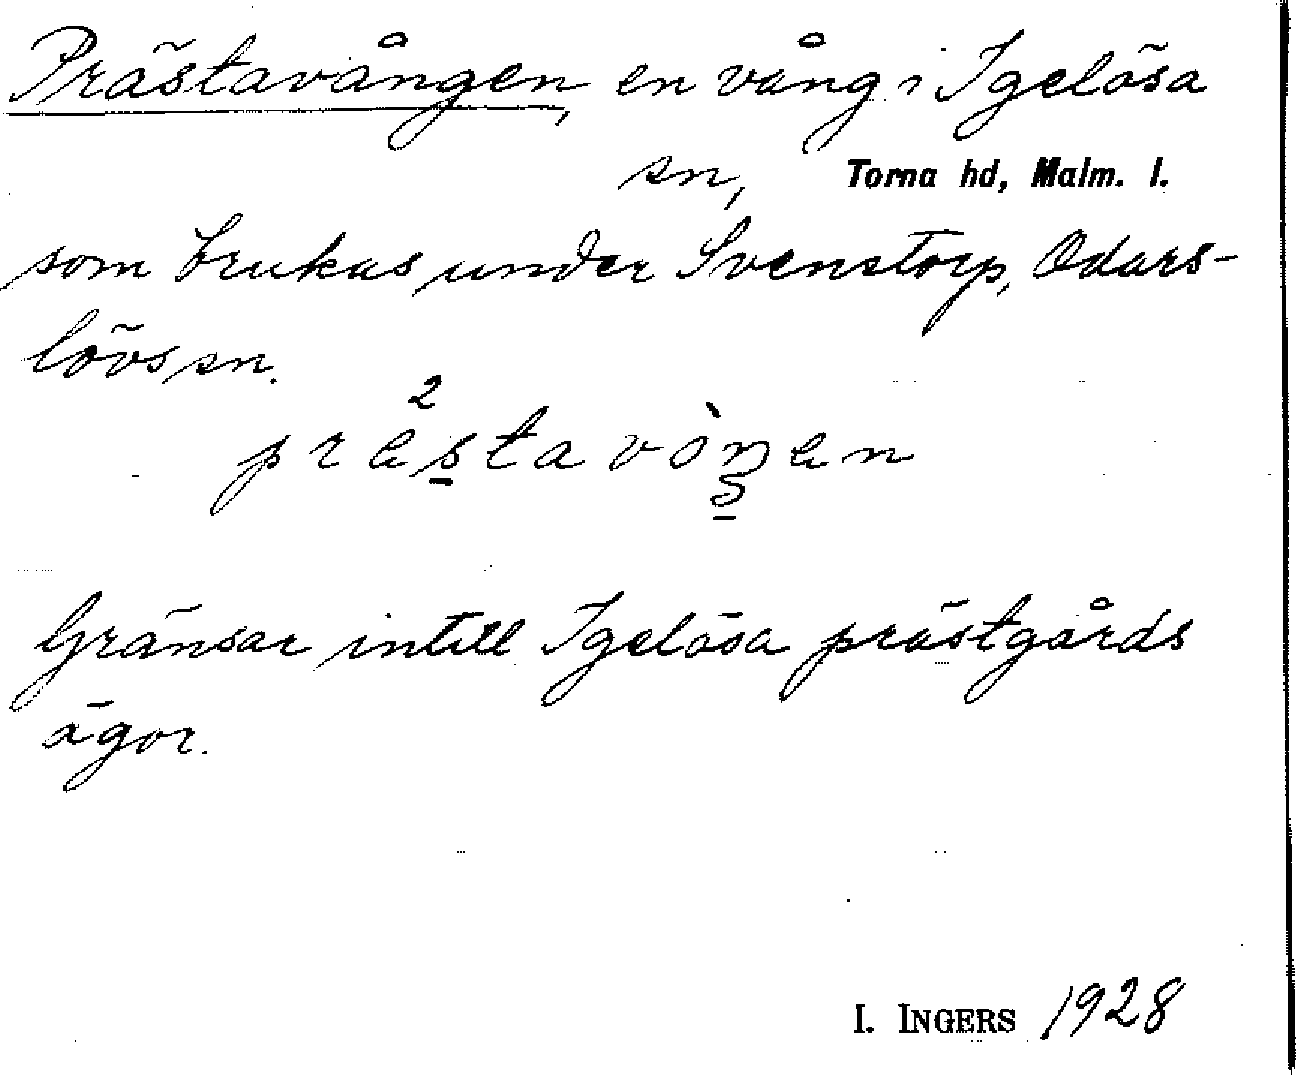 Prästavången, en vång i Igelösa
sn, Torna hd, Malm. l.
som brukas under Svenstorp, Odars-
lövs sn.
prä²stavòŋen
Gränsar intill Igelösa prästgårds
ägor.
I. INGERS 1928